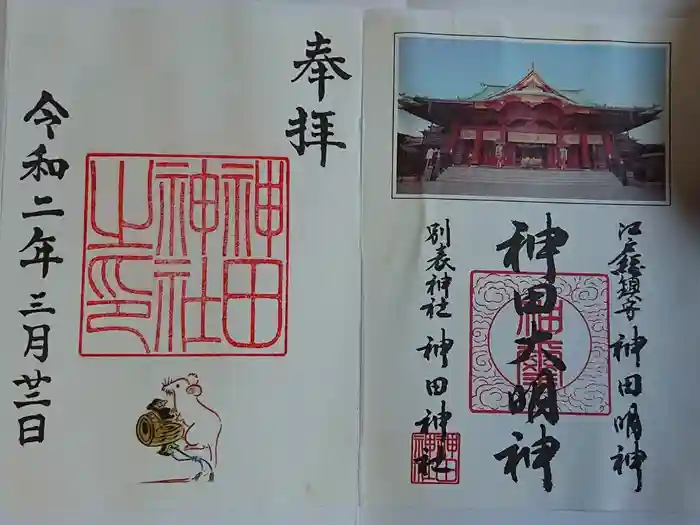 奉拝
神田
神社
之印
令和二年三月廿三日
江戸総鎮守 神田明神
神田大明神
別表神社 神田神社
神田
神社